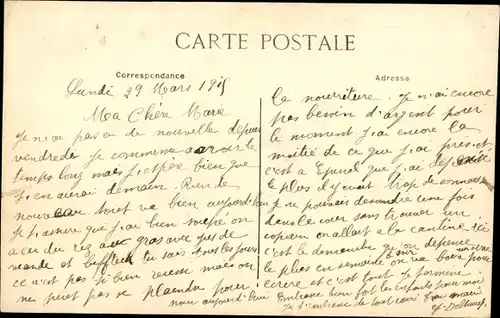 CARTE POSTALE
Correspondance
Adresse
Lundi 29 Mars 1915
Ma Chère Marie
Je n'ai pas eu de nouvelle depuis
vendredi je commence a avoir le
temps long mais j'espère bien que
j'en aurai demain. Rien de
nouveau tout va bien aujourd'hui
je t'assure que j'ai bien soupé on
a eu du riz au gras avec jus de
viande et tu sais tous les jours
ce n'est pas si bien mais on
ne peut pas se plaindre pour
la nourriture. Je n'ai encore
pas besoin d'argent pour
le moment j'ai encore la
moitié de ce que j'ai pres et
c'est a Epinal que j'ai dépensé
le plus il y avait trop de connaissances
je ne pouvais descendre une fois
dans le cour sans trouver un
copain on allait a la cantine ici
c'est le dimanche qu'on dépense
le plus en semaine on va boire
et c'est tout je termine
nous aujourd'hui Embrasse bien fort les enfants pour moi
Je t'embrasse de tout cœur Ton mari